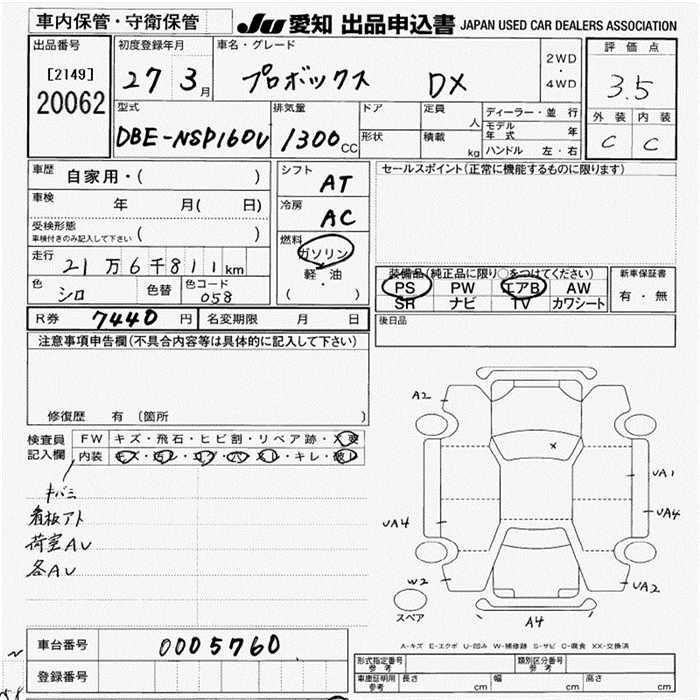 車内保管・守衛保管
JU 愛知 出品申込書 JAPAN USED CAR DEALERS ASSOCIATION
出品番号
[2149]
20062
初度登録年月
27 3月
車名・グレード
プロボックス DX
2WD
・
4WD
評価点
3.5
外装 内装
C C
型式
DBE-NSP160V
排気量
1300 CC
ドア
形状
定員
人
積載
kg
ディーラー・並行
モデル年式 年
ハンドル 左・右
車歴 自家用・( )
車検 年 月( 日)
受検形態
車検付きのみ記入して下さい ( )
走行 21万6千811km
色 シロ 色替 色コード 058
シフト AT
冷房 AC
燃料
ガソリン
・
軽油
・
( )
セールスポイント(正常に機能するものに限ります)
装備品(純正品に限り○をつけてください)
PS PW エアB AW
SR ナビ TV カワシート
新車保証書
有・無
R券 7440円 名変期限 月 日
後日品
注意事項申告欄(不具合内容等は具体的に記入して下さい)
修復歴 有 (箇所 )
検査員記入欄
FW キズ・飛石・ヒビ割・リペア跡・X要
内装 キズ・汚レ・コゲ・穴・スレ・キレ・破レ
キバミ
看板アト
荷室AU
各AU
A2
X
UA1
UA4
UA4
W2
UA2
A4
スペア
A-キズ E-エクボ U-凹み W-補修跡 S-サビ C-腐食 XX-交換済
車台番号 0005760
登録番号
型式指定番号 参考
類別区分番号 参考
車庫証明用 参考 長さ cm 幅 cm 高さ cm